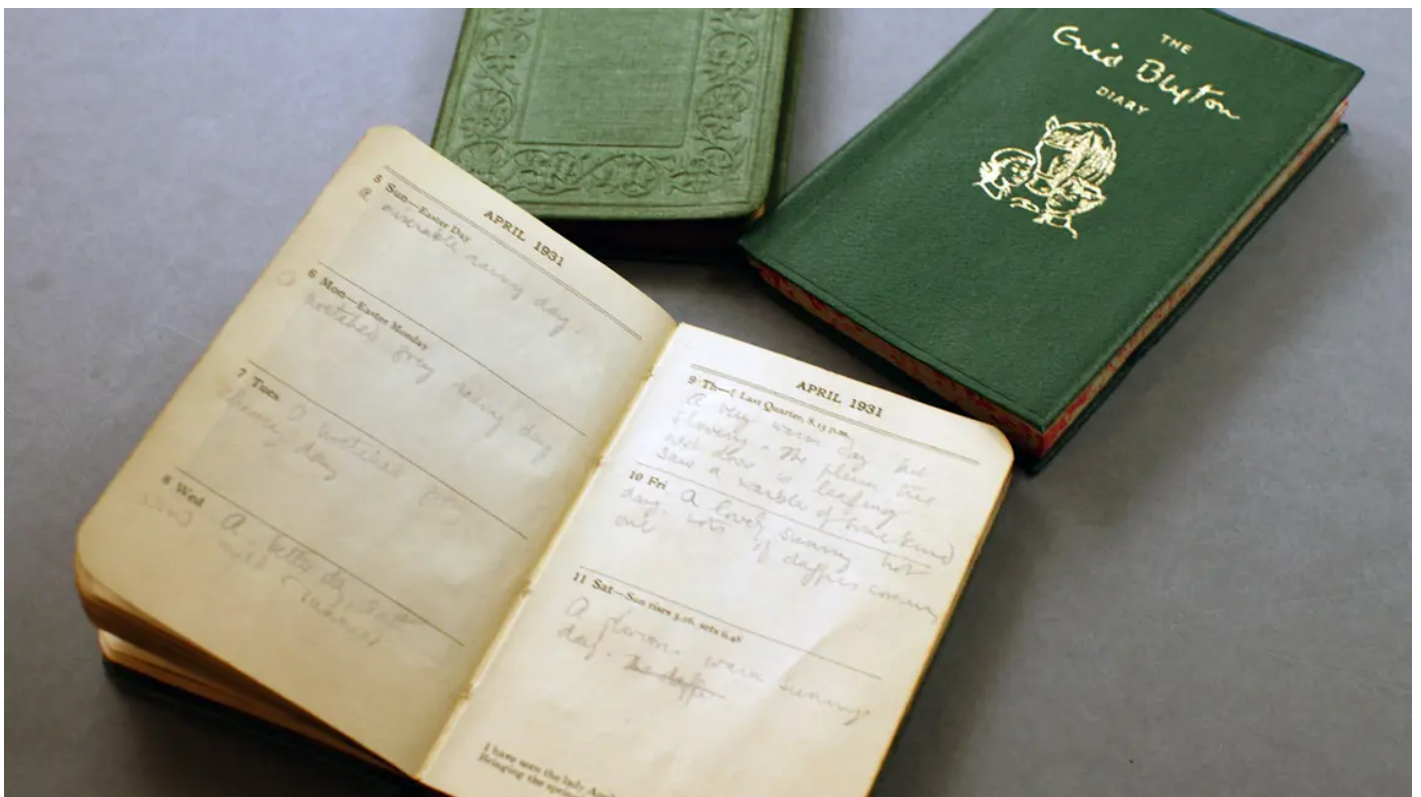 THE
Enid Blyton
DIARY
APRIL 1931
5 Sun—Easter Day
A miserable rainy day.
6 Mon—Easter Monday
A wretched grey rainy day
7 Tues
A wretched grey
rainy day
8 Wed
A better day, but
APRIL 1931
9 Th—☾ Last Quarter, 8.15 p.m.
A very warm day but
showery. The plum tree
next door is leafing
saw a warbler of some kind
10 Fri
A lovely sunny hot
day. Lots of daffies coming
out
11 Sat—Sun rises 5.16, sets 6.46
A warm sunny
day. The daffs
I have seen the lady April
Bringing the spring